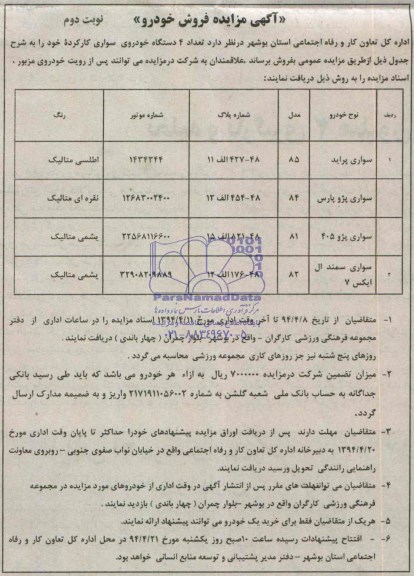 «آگهی مزایده فروش خودرو» نوبت دوم
اداره کل تعاون کار و رفاه اجتماعی استان بوشهر درنظر دارد تعداد ۴ دستگاه خودروی سواری کارکردهٔ خود را به شرح
جدول ذیل ازطریق مزایده عمومی بفروش برساند .علاقمندان به شرکت درمزایده می توانند پس از رویت خودروی مزبور ،
اسناد مزایده را به روش ذیل دریافت نمایند:
ردیف نوع خودرو مدل شماره پلاک شماره موتور رنگ
۱ سواری پراید ۸۵ ۴۸-۴۲۷ الف ۱۱ ۱۴۳۴۳۴۴ اطلسی متالیک
سواری پژو پارس ۸۴ ۴۸-۴۵۴ الف ۱۲ ۱۲۶۸۳۰۰۲۴۰۰ نقره ای متالیک
سواری پژو ۴۰۵ ۸۱ ۴۸-۸۲۱ الف ۱۵ ۲۲۵۶۸۱۱۶۶۰۰ یشمی متالیک
سواری سمند ال ایکس ۷ ۸۲ ۴۸-۱۷۶ الف ۱۴ ۳۲۹۰۸۲۰۹۸۸۹ یشمی متالیک
ParsNamadData
۰۲۱-۸۸۳۴۹۶۷۰
۱- متقاضیان از تاریخ ۹۴/۴/۸ تا آخر وقت اداری مورخ ۱۳۹۴/۴/۱۱ اسناد مزایده را در ساعات اداری از دفتر
مجموعه فرهنگی ورزشی کارگران - واقع در بوشهر -بلوار چمران ( چهار باندی ) دریافت نمایند.
روزهای پنج شنبه نیز جز روزهای کاری مجموعه ورزشی محاسبه می گردد .
۲- میزان تضمین شرکت درمزایده ۷۰۰۰۰۰۰ ریال به ازاء هر خودرو می باشد که باید طی رسید بانکی
جداگانه به حساب بانک ملی شعبه گلشن به شماره ۲۱۷۱۹۱۱۰۵۶۰۰۲ واریز و به ضمیمه مدارک ارسال
گردد.
۳- متقاضیان مهلت دارند پس از دریافت اوراق مزایده پیشنهادهای خودرا حداکثر تا پایان وقت اداری مورخ
۱۳۹۴/۴/۲۰ به دبیرخانه اداره کل تعاون کار و رفاه اجتماعی واقع در خیابان نواب صفوی جنوبی – روبروی معاونت
راهنمایی رانندگی تحویل ورسید دریافت نمایند.
۴- متقاضیان می توانند مقرر پس از انتشار آگهی در وقت اداری از خودروهای مورد مزایده در مجموعه
فرهنگی ورزشی کارگران واقع در بوشهر -بلوار چمران ( چهار باندی ) بازدید نمایند .
۵- هریک از متقاضیان فقط برای خرید یک خودرو می توانند پیشنهاد ارائه نمایند.
۶- - افتتاح پیشنهادات رسیده ساعت ۱۰صبح روز یکشنبه مورخ ۹۴/۴/۲۱ در محل اداره کل تعاون کار و رفاه
اجتماعی استان بوشهر – دفتر مدیر پشتیبانی و توسعه منابع انسانی خواهد بود.